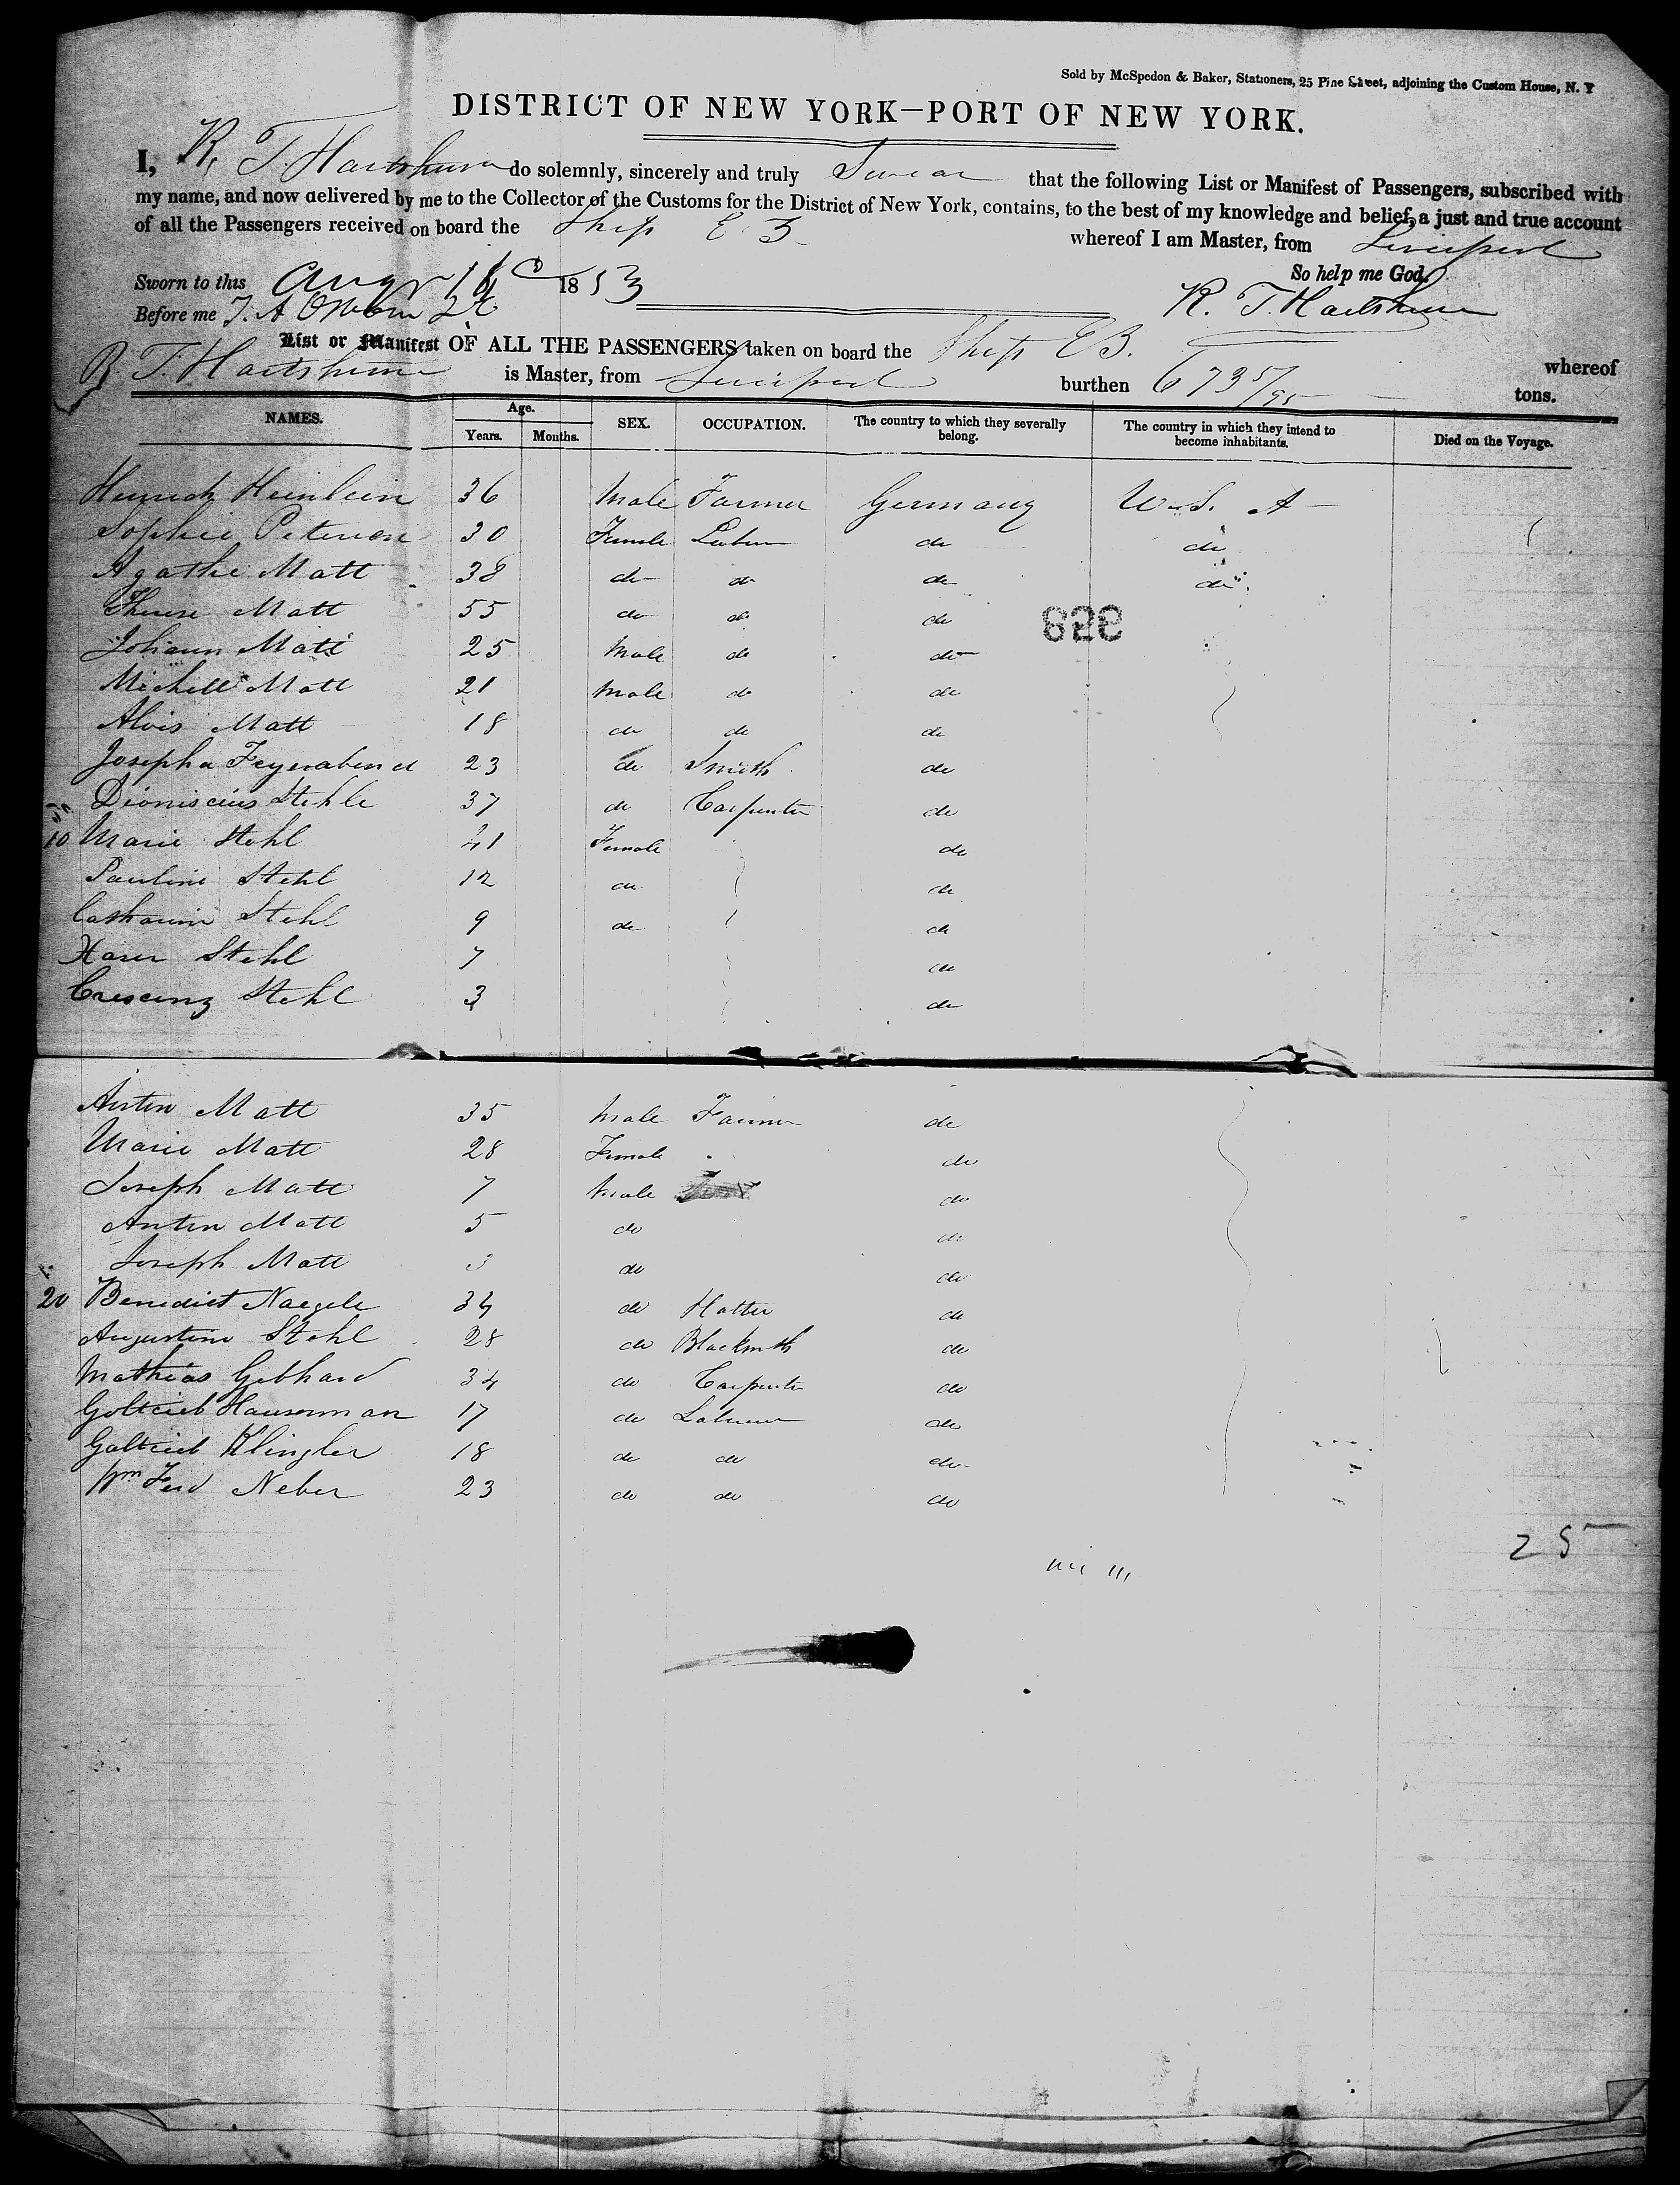 Sold by McSpedon & Baker, Stationers, 25 Pine Street, adjoining the Custom House, N. Y
DISTRICT OF NEW YORK—PORT OF NEW YORK.
I, R. T. Hartshorn do solemnly, sincerely and truly Swear that the following List or Manifest of Passengers, subscribed with
my name, and now delivered by me to the Collector of the Customs for the District of New York, contains, to the best of my knowledge and belief, a just and true account
of all the Passengers received on board the Ship E. B. whereof I am Master, from Liverpool
So help me God.
Sworn to this Augt 16 1853 R. T. Hartshorn
Before me
List or Manifest OF ALL THE PASSENGERS taken on board the Ship EB. whereof
R. T. Hartshorn is Master, from Liverpool burthen 673 5/95 tons.
NAMES. Age. Years. Months. SEX. OCCUPATION. The country to which they severally belong. The country in which they intend to become inhabitants. Died on the Voyage.
Heinrich Heinlein 36 Male Farmer Germany U. S. A
Sophie Peterson 30 Female do do
Agathe Matt 38 do do do do
Therese Matt 55 do do do
828
Johann Matt 25 Male do do
Michell Matt 21 Male do do
Alois Matt 18 do do do
Josepha Feyerabend 23 do Smith do
Dioniscius Stehle 37 do Carpenter do
10 Marie Stehl 41 Female do
Pauline Stehl 12 do do
Stehl 9 do do
Xaver Stehl 7 do
Crescenz Stehl 3 do
Anton Matt 35 Male Farmer do
Marie Matt 28 Female do
Joseph Matt 7 Male do
Anton Matt 5 do do
Joseph Matt do do
20 Benedict Naegele 34 do Hatter do
Augustine Stehl 28 do Blacksmith do
Mathias Gebhard 34 do Carpenter do
Gottlieb Hauserman 17 do Labourer do
Gottlieb Klingler 18 do do do
Wm Ferd Neber 23 do do do
25